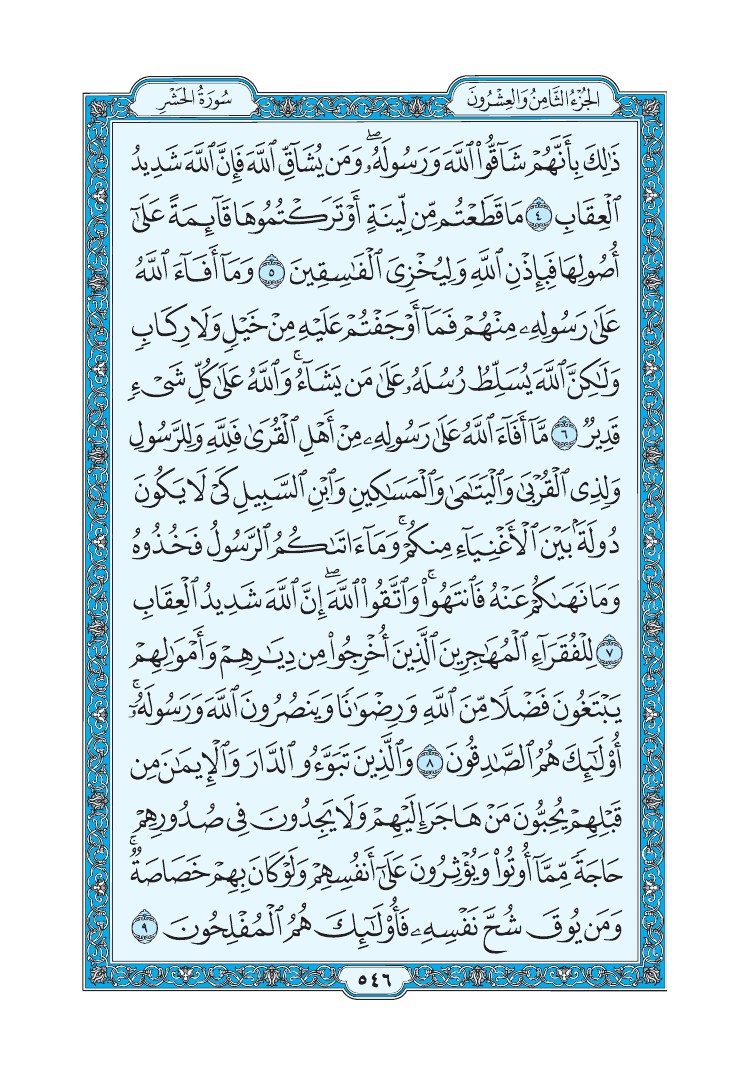 الجُزْءُ الثَّامِنُ وَالعِشْرُونَ
سُورَةُ الحَشْرِ
ذَٰلِكَ بِأَنَّهُمْ شَآقُّوا۟ ٱللَّهَ وَرَسُولَهُۥۖ وَمَن يُشَآقِّ ٱللَّهَ فَإِنَّ ٱللَّهَ شَدِيدُ
ٱلْعِقَابِ ٤ مَا قَطَعْتُم مِّن لِّينَةٍ أَوْ تَرَكْتُمُوهَا قَآئِمَةً عَلَىٰٓ
أُصُولِهَا فَبِإِذْنِ ٱللَّهِ وَلِيُخْزِىَ ٱلْفَٰسِقِينَ ٥ وَمَآ أَفَآءَ ٱللَّهُ
عَلَىٰ رَسُولِهِۦ مِنْهُمْ فَمَآ أَوْجَفْتُمْ عَلَيْهِ مِنْ خَيْلٍ وَلَا رِكَابٍ
وَلَٰكِنَّ ٱللَّهَ يُسَلِّطُ رُسُلَهُۥ عَلَىٰ مَن يَشَآءُۚ وَٱللَّهُ عَلَىٰ كُلِّ شَىْءٍ
قَدِيرٌ ٦ مَّآ أَفَآءَ ٱللَّهُ عَلَىٰ رَسُولِهِۦ مِنْ أَهْلِ ٱلْقُرَىٰ فَلِلَّهِ وَلِلرَّسُولِ
وَلِذِى ٱلْقُرْبَىٰ وَٱلْيَتَٰمَىٰ وَٱلْمَسَٰكِينِ وَٱبْنِ ٱلسَّبِيلِ كَىْ لَا يَكُونَ
دُولَةًۢ بَيْنَ ٱلْأَغْنِيَآءِ مِنكُمْۚ وَمَآ ءَاتَىٰكُمُ ٱلرَّسُولُ فَخُذُوهُ
وَمَا نَهَىٰكُمْ عَنْهُ فَٱنتَهُوا۟ۚ وَٱتَّقُوا۟ ٱللَّهَۖ إِنَّ ٱللَّهَ شَدِيدُ ٱلْعِقَابِ
٧ لِلْفُقَرَآءِ ٱلْمُهَٰجِرِينَ ٱلَّذِينَ أُخْرِجُوا۟ مِن دِيَٰرِهِمْ وَأَمْوَٰلِهِمْ
يَبْتَغُونَ فَضْلًا مِّنَ ٱللَّهِ وَرِضْوَٰنًا وَيَنصُرُونَ ٱللَّهَ وَرَسُولَهُۥٓۚ
أُو۟لَٰٓئِكَ هُمُ ٱلصَّٰدِقُونَ ٨ وَٱلَّذِينَ تَبَوَّءُو ٱلدَّارَ وَٱلْإِيمَٰنَ مِن
قَبْلِهِمْ يُحِبُّونَ مَنْ هَاجَرَ إِلَيْهِمْ وَلَا يَجِدُونَ فِى صُدُورِهِمْ
حَاجَةً مِّمَّآ أُوتُوا۟ وَيُؤْثِرُونَ عَلَىٰٓ أَنفُسِهِمْ وَلَوْ كَانَ بِهِمْ خَصَاصَةٌۚ
وَمَن يُوقَ شُحَّ نَفْسِهِۦ فَأُو۟لَٰٓئِكَ هُمُ ٱلْمُفْلِحُونَ ٩
٥٤٦